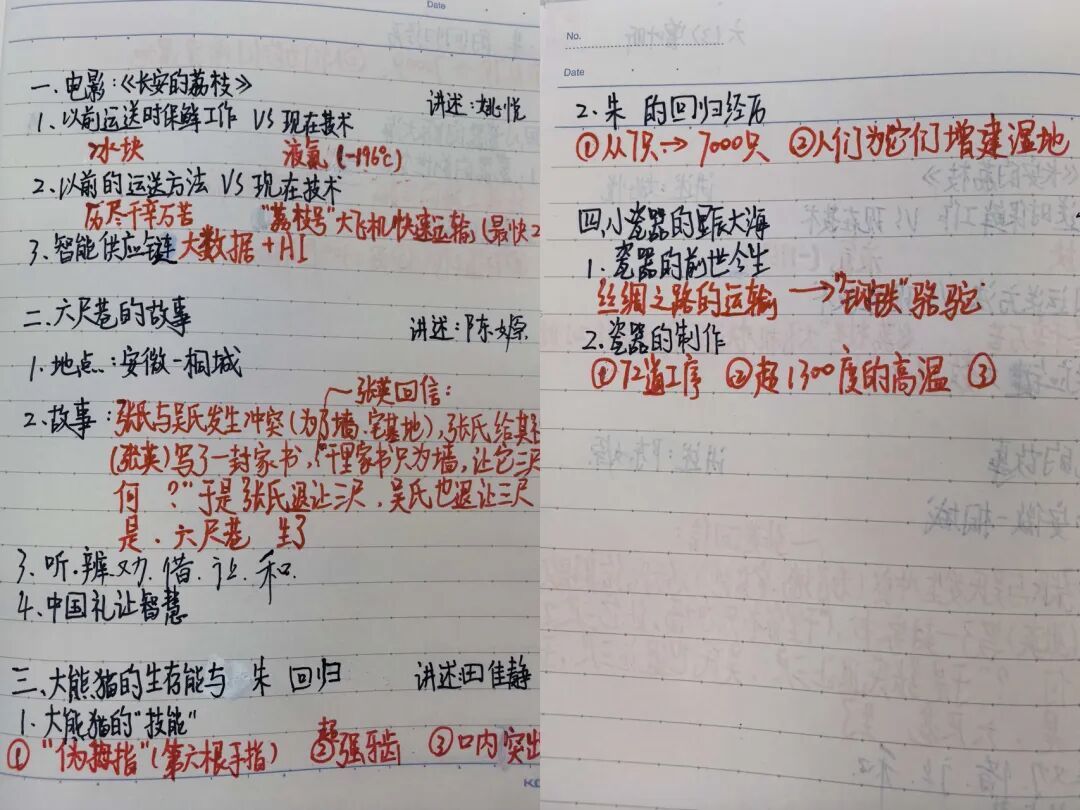 Date
一、电影:《长安的荔枝》
讲述:姚悦
1、以前运送时保鲜工作 VS 现在技术
冰块 液氮(-196℃)
2、以前的运送方法 VS 现在技术
历尽千辛万苦 "荔枝号"大飞机快速运输(最快2
3、智能供应链 大数据+AI
二、六尺巷的故事
讲述:陈媛
1、地点:安徽-桐城
张英回信:
2、故事:张氏与吴氏发生冲突(为了墙、宅基地),张氏给其
(张英)写了一封家书,"千里家书只为墙,让它三尺
何 ?"于是张氏退让三尺,吴氏也退让三尺
是、六尺巷 生了
3、听、辨、劝、借、让、和、
4、中国礼让智慧
三、大熊猫的生存能与 朱 回归
讲述:田佳静
1、大熊猫的"技能"
① "伪拇指"(第六根手指) ②超强牙齿 ③口内突出
No.
Date
2、朱 的回归经历
①从7只→7000只 ②人们为它们增建湿地
四、小瓷器的星辰大海
1、瓷器的前世今生
丝绸之路的运输→"钢铁"骆驼
2、瓷器的制作
①72道工序 ②超1300度的高温 ③